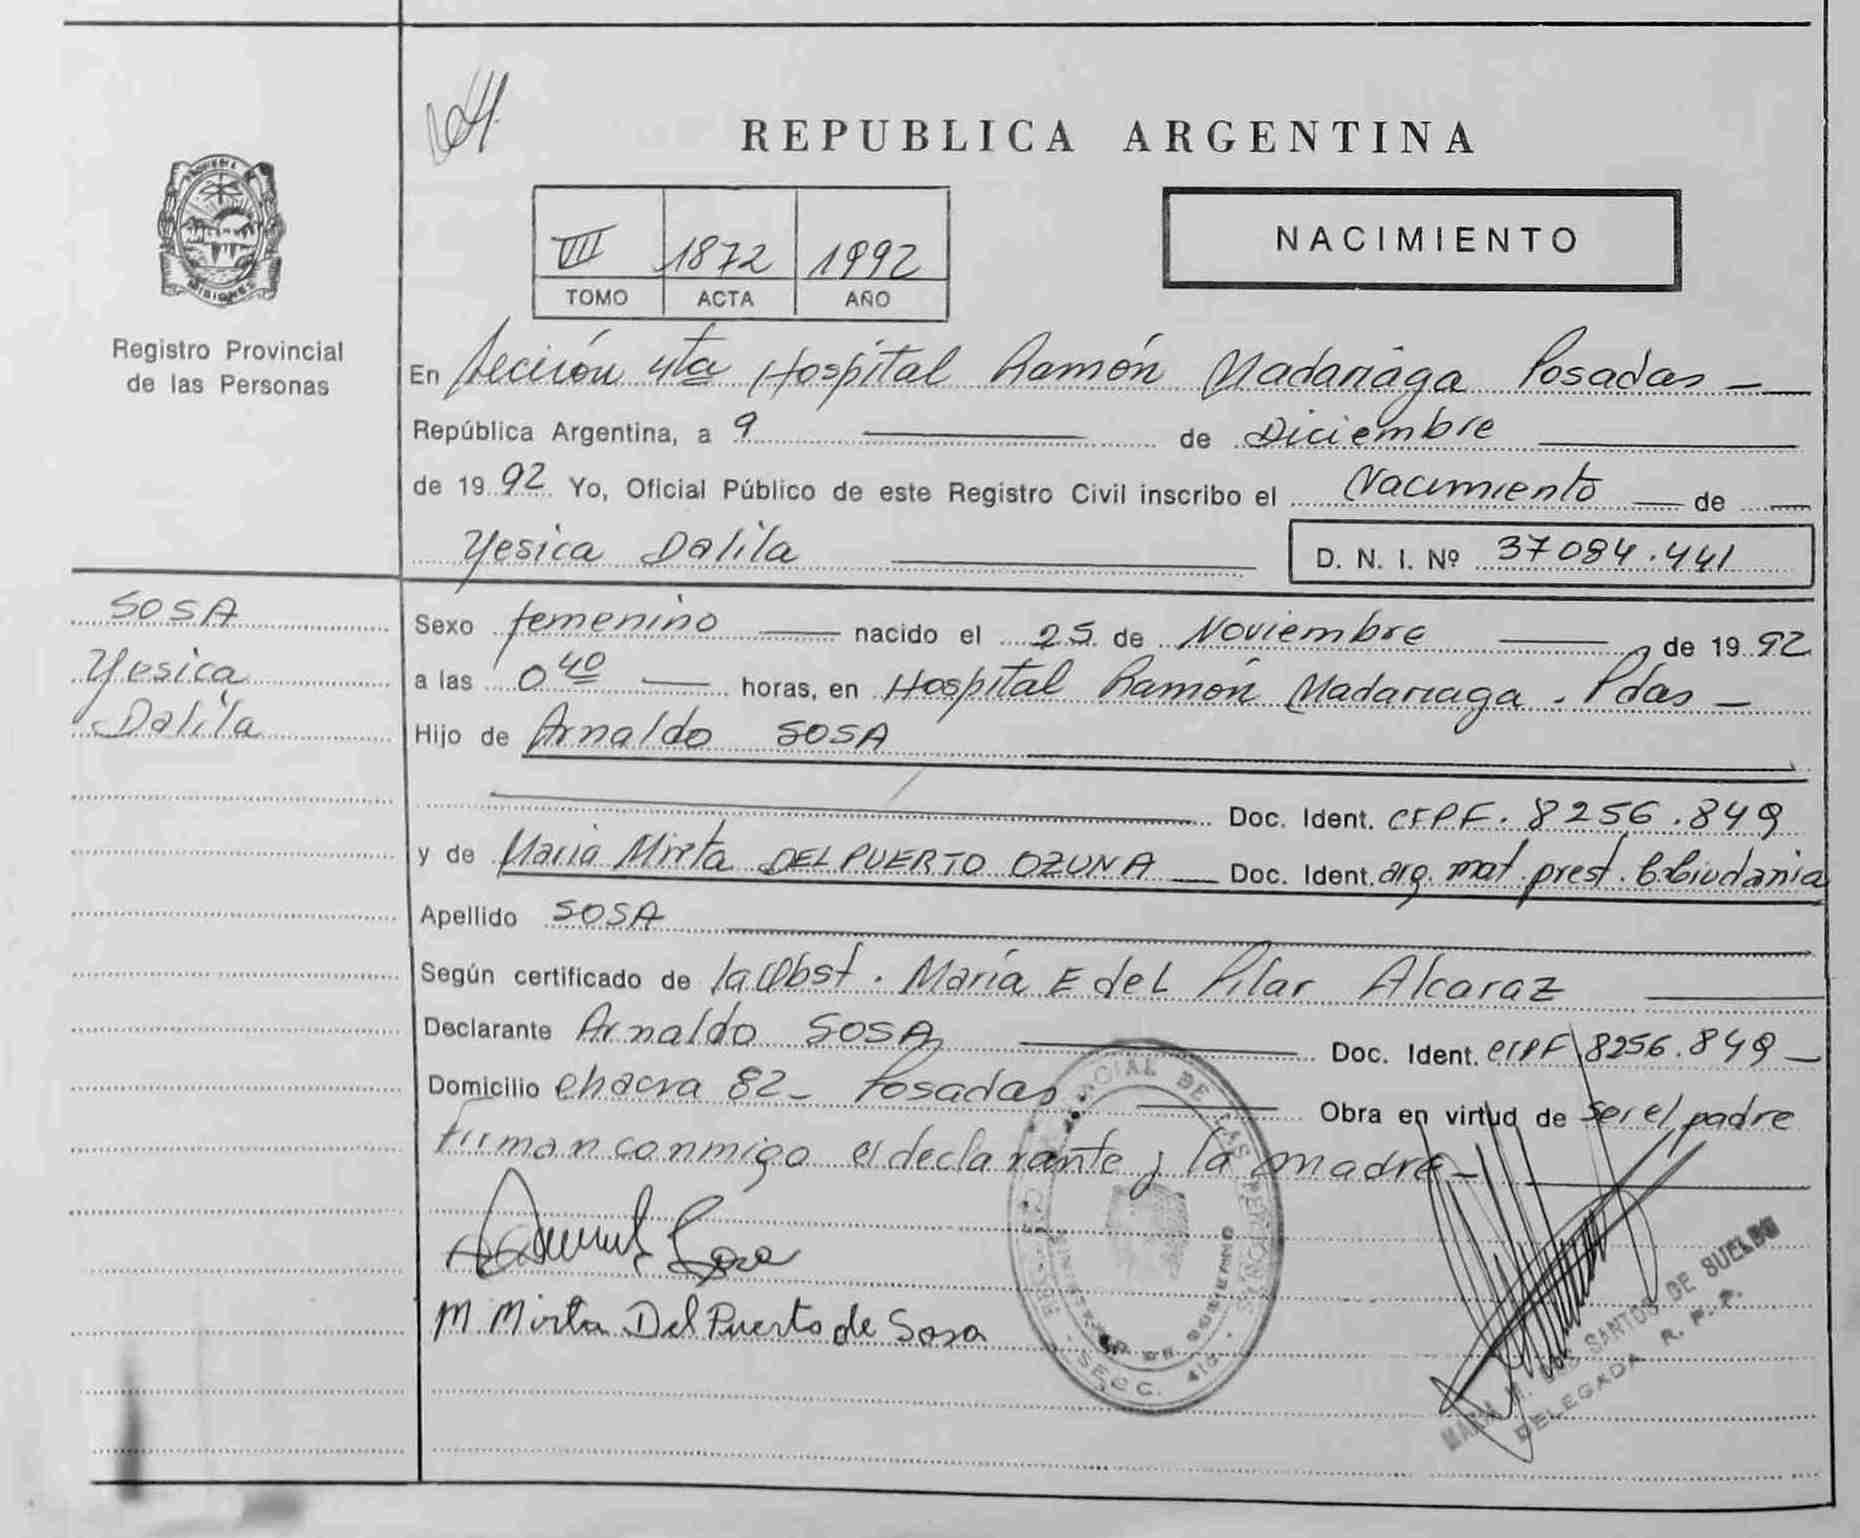 REPUBLICA ARGENTINA
PROVINCIA
MISIONES
Registro Provincial
de las Personas
VII 1872 1992
TOMO ACTA AÑO
NACIMIENTO
En Sección 4ta Hospital Ramón Madariaga Posadas —
República Argentina, a 9 de Diciembre
de 1992 Yo, Oficial Público de este Registro Civil inscribo el Nacimiento — de —
Yesica Dalila
D. N. I. Nº 37084.441
SOSA
Yesica
Dalila
Sexo femenino — nacido el 25 de Noviembre — de 1992
a las 0 40 — horas, en Hospital Ramón Madariaga. Pdas —
Hijo de Arnaldo SOSA
Doc. Ident. CIPF. 8256.849
y de Maria Mirta DEL PUERTO OZUNA — Doc. Ident. arg. mat. prest. Ciudania
Apellido SOSA
Según certificado de la Obst. María E del Pilar Alcaraz
Declarante Arnaldo SOSA — Doc. Ident. CIPF 8256.849 —
Domicilio chacra 82 - Posadas — Obra en virtud de ser el padre
Firman conmigo el declarante y la madre —
Sosa
M. Mirta Del Puerto de Sosa
DE LAS PERSONAS
DE GOBIERNO
SECC. 4ta.
SANTOS DE SUELDO
DELEGADA R. P. P.